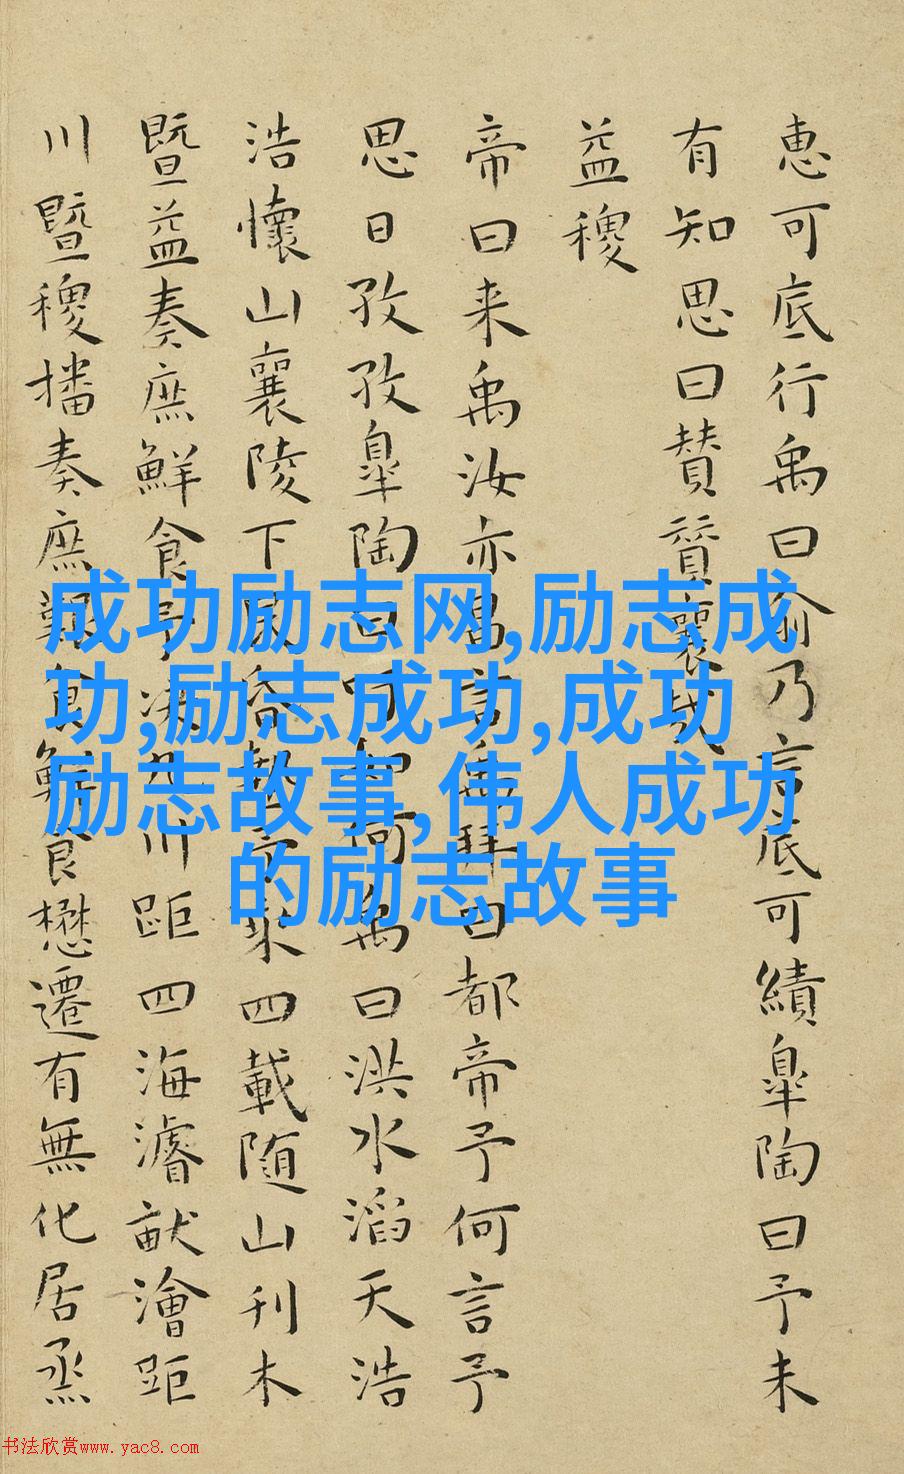 惠可底行禹曰俞乃言底可績皐陶曰予未
有知思曰賛賛襄哉
益稷
帝曰来禹汝亦昌言禹拜曰都帝予何言予
思日孜孜皐陶曰吁如何禹曰洪水滔天浩
浩懷山襄陵下民昏墊予乘四載随山刊木
暨益奏庶鮮食予決九川距四海濬畎澮距
川暨稷播奏庶艱食鮮食懋遷有無化居烝
成功励志网,励志成
功,励志成功,成功
励志故事,伟人成功
的励志故事
书法欣赏www.yac8.com